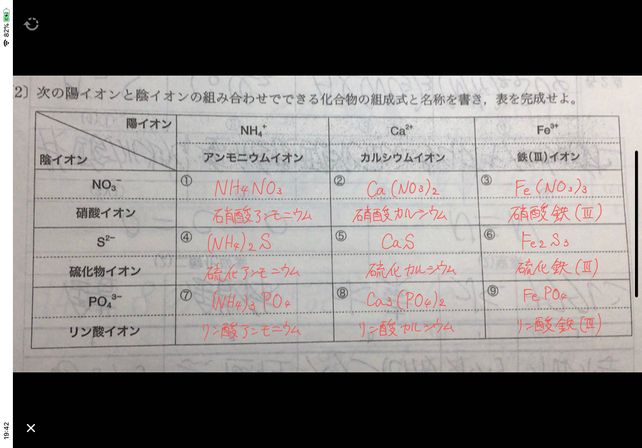 82%
19:42
2〕次の陽イオンと陰イオンの組み合わせでできる化合物の組成式と名称を書き，表を完成せよ。
陽イオン
陰イオン
NH₄⁺
Ca²⁺
Fe³⁺
アンモニウムイオン
カルシウムイオン
鉄(Ⅲ)イオン
NO₃⁻
① NH₄NO₃
② Ca(NO₃)₂
③ Fe(NO₃)₃
硝酸イオン
硝酸アンモニウム
硝酸カルシウム
硝酸鉄(Ⅲ)
S²⁻
④ (NH₄)₂S
⑤ CaS
⑥ Fe₂S₃
硫化物イオン
硫化アンモニウム
硫化カルシウム
硫化鉄(Ⅲ)
PO₄³⁻
⑦ (NH₄)₃PO₄
⑧ Ca₃(PO₄)₂
⑨ FePO₄
リン酸イオン
リン酸アンモニウム
リン酸カルシウム
リン酸鉄(Ⅲ)